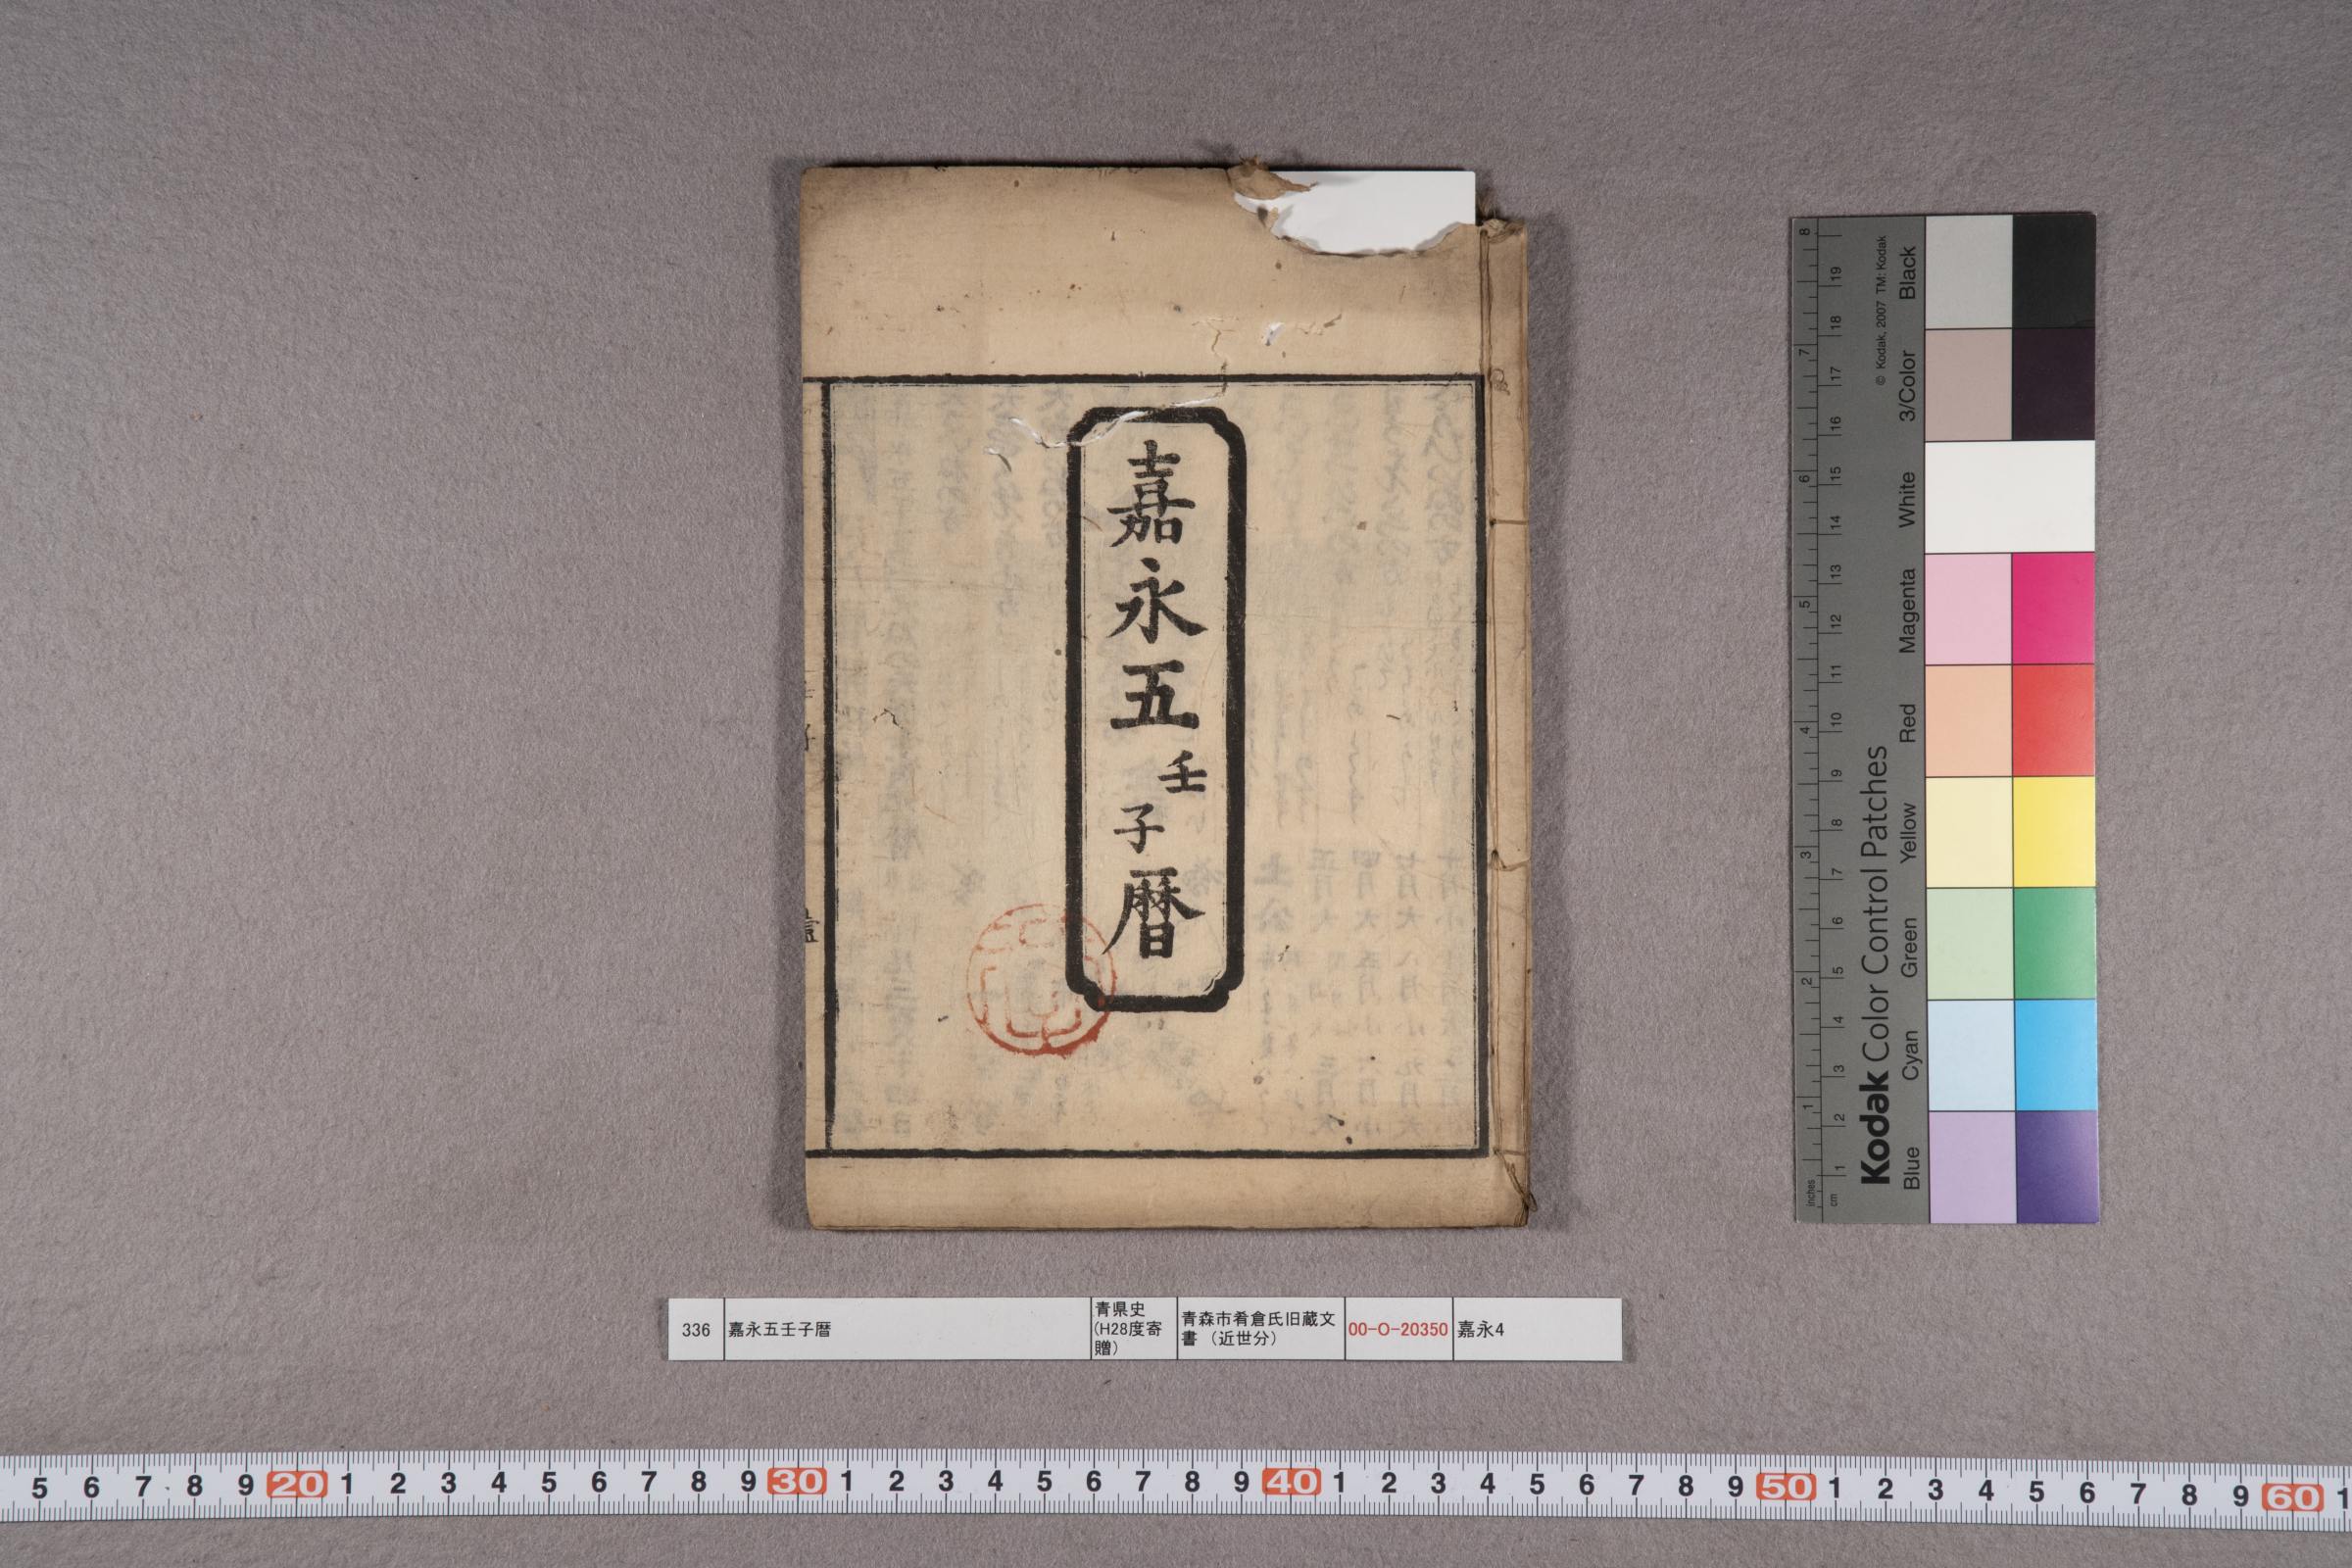 嘉永五壬子暦
336
嘉永五壬子暦
青県史
(H28度寄
贈)
青森市肴倉氏旧蔵文
書(近世分)
00-O-20350
嘉永4
© Kodak, 2007 TM: Kodak
Kodak Color Control Patches
Blue Cyan Green Yellow Red Magenta White 3/Color Black
inches 1 2 3 4 5 6 7 8
cm 1 2 3 4 5 6 7 8 9 10 11 12 13 14 15 16 17 18 19
5 6 7 8 9 20 1 2 3 4 5 6 7 8 9 30 1 2 3 4 5 6 7 8 9 40 1 2 3 4 5 6 7 8 9 50 1 2 3 4 5 6 7 8 9 60 1